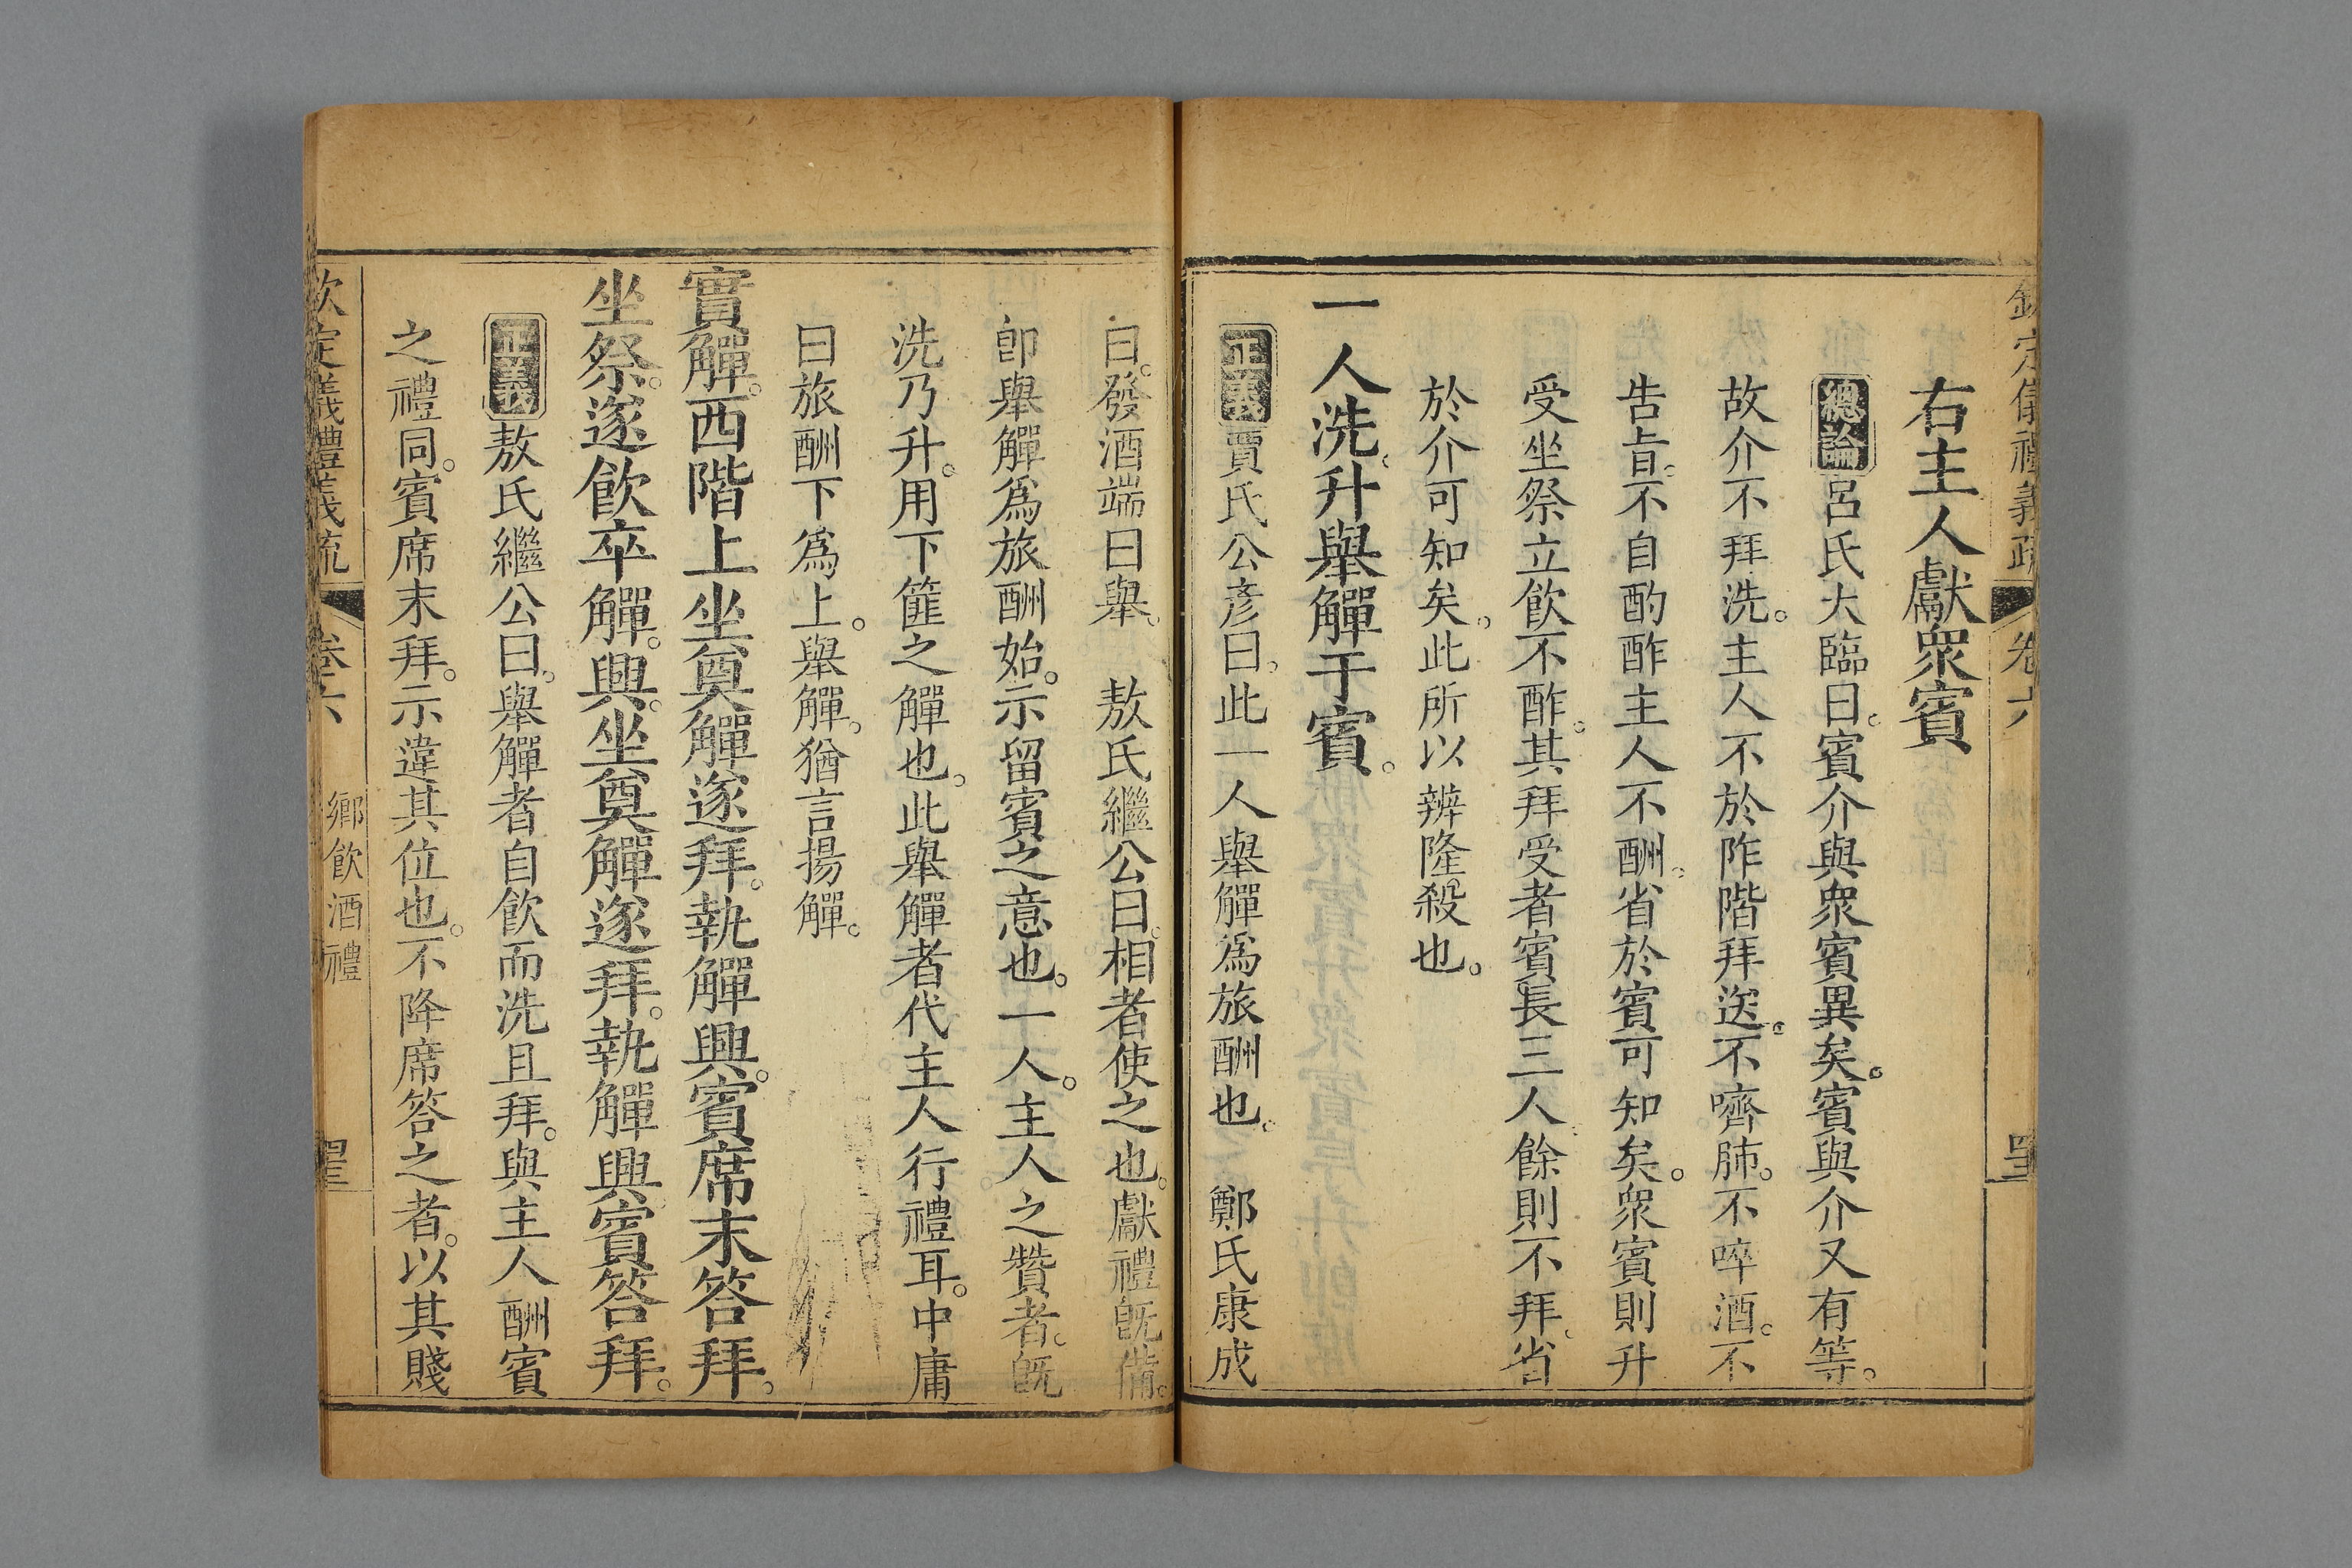 欽定儀禮義疏 卷六
右主人獻衆賓
總論呂氏大臨曰。賓介與衆賓異矣。賓與介又有等。
故介不拜洗。主人不於阼階拜送。不嚌肺。不啐酒。不
告旨。不自酌酢主人不酬。省於賓可知矣。衆賓則升
受坐祭立飲不酢。其拜受者賓長三人。餘則不拜。省
於介可知矣。此所以辨隆殺也。
一人洗。升舉觶于賓。
正義賈氏公彦曰。此一人舉觶爲旅酬也。 鄭氏康成
曰。發酒端曰舉。 敖氏繼公曰。相者使之也。獻禮旣備。
卽舉觶爲旅酬始。示留賓之意也。一人。主人之贊者。旣
洗乃升。用下篚之觶也。此舉觶者代主人行禮耳。中庸
曰旅酬下爲上。舉觶。猶言揚觶。
實觶。西階上坐奠觶遂拜。執觶興。賓席末答拜。
坐祭。遂飲卒觶。興。坐奠觶遂拜。執觶興賓答拜。
正義敖氏繼公曰。舉觶者自飲而洗且拜。與主人酬賓
之禮同。賓席末拜。示違其位也。不降席答之者。以其賤
欽定儀禮義疏 卷六 鄉飲酒禮